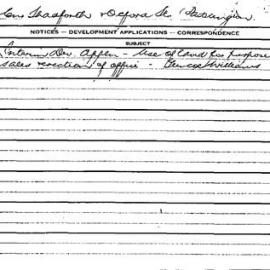 Cnr Shadforth & Oxford St. Paddington
NOTICES — DEVELOPMENT APPLICATIONS — CORRESPONDENCE
SUBJECT
Interim Dev. Applic. - Use of land for purpose
sales erection of office - Williams